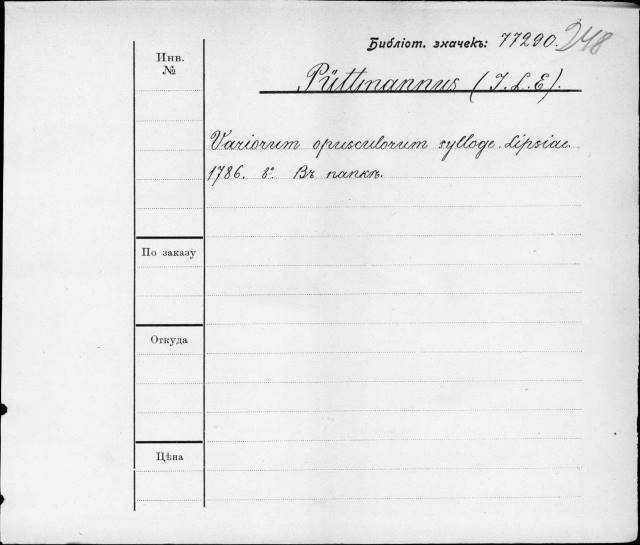 Библіот. значекъ: 77290. 248
Инв.
№
Püttmannus (I. L. E).
Variorum opusculorum sylloge. Lipsiae.
1786. 8º. Въ папкѣ.
По заказу
Откуда
Цѣна